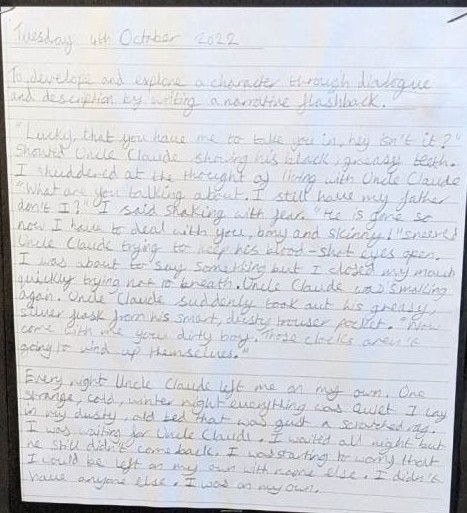 Tuesday 4th October 2022
To develope and explore a character through dialogue
and description by writing a narrative flashback.
"Lucky that you have me to take you in, hey isn't it?"
Shouted Uncle Claude showing his black, greasy teeth.
I shuddered at the thought of living with Uncle Claude
"What are you talking about. I still have my father
don't I?" I said shaking with fear. "He is gone so
now I have to deal with you, bony and skinny!" sneered
Uncle Claude trying to keep his blood-shot eyes open.
I was about to say something but I closed my mouth
quickly trying not to breath. Uncle Claude was smoking
again. Uncle Claude suddenly took out his greasy,
silver flask from his smart, dusty trouser pocket. "Now
come with me you dirty boy. Those clocks aren't
going to wind up themselves."
Every night Uncle Claude left me on my own. One
strange, cold, winter night everything was quiet I lay
in my dusty, old bed that was just a scratched rag.
I was waiting for Uncle Claude. I waited all night but
he still didn't come back. I was starting to worry that
I would be left on my own with noone else. I didn't
have anyone else. I was on my own.